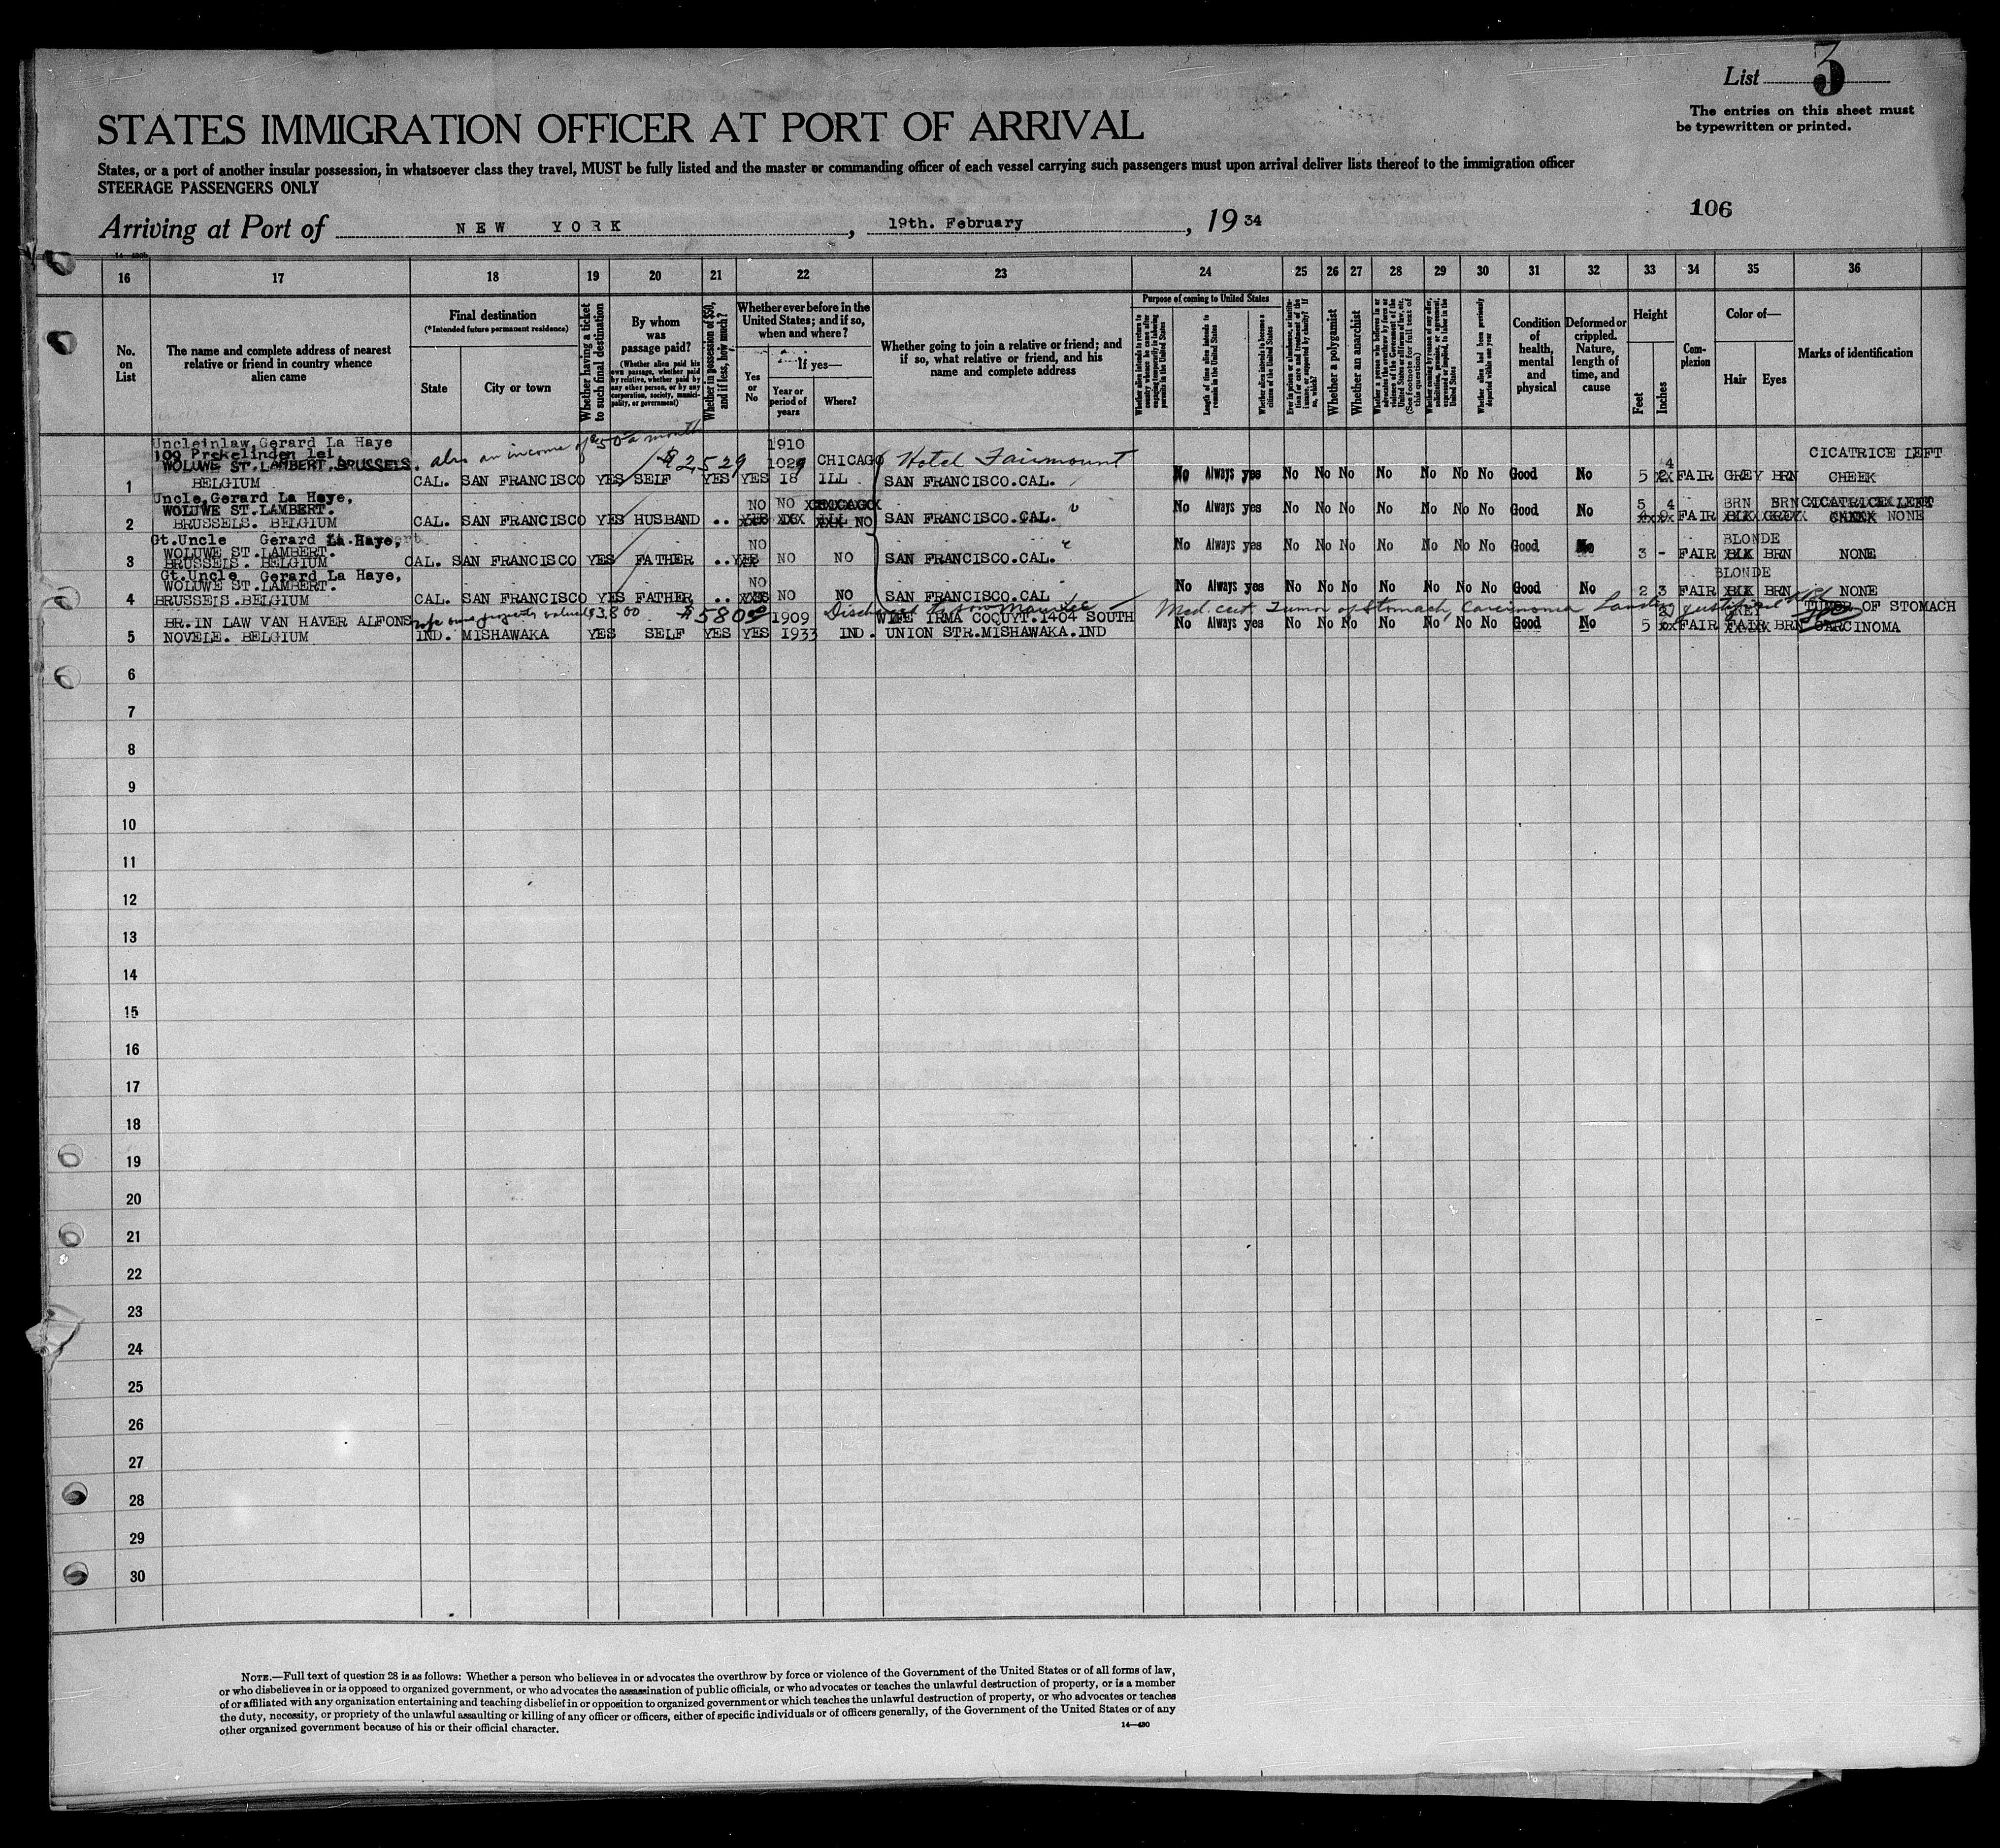 List 3
The entries on this sheet must
be typewritten or printed.
STATES IMMIGRATION OFFICER AT PORT OF ARRIVAL
States, or a port of another insular possession, in whatsoever class they travel, MUST be fully listed and the master or commanding officer of each vessel carrying such passengers must upon arrival deliver lists thereof to the immigration officer
STEERAGE PASSENGERS ONLY
106
Arriving at Port of NEW YORK, 19th. February, 19 34
16 17 18 19 20 21 22 23 24 25 26 27 28 29 30 31 32 33 34 35 36
No. on List
The name and complete address of nearest relative or friend in country whence alien came
Final destination
(*Intended future permanent residence)
State
City or town
Whether having a ticket to such final destination
By whom was passage paid?
(Whether alien paid his own passage, whether paid by relative, whether paid by any other person, or by any corporation, society, municipality, or government)
Whether in possession of $50, and if less, how much?
Whether ever before in the United States; and if so, when and where?
Yes or No
If yes—
Year or period of years
Where?
Whether going to join a relative or friend; and if so, what relative or friend, and his name and complete address
Purpose of coming to United States
Whether alien intends to return to country whence he came after engaging temporarily in laboring pursuits in the United States
Length of time alien intends to remain in the United States
Whether alien intends to become a citizen of the United States
Whether a polygamist
Whether an anarchist
Whether alien had been previously deported within one year
Condition of health, mental and physical
Deformed or crippled. Nature, length of time, and cause
Height
Feet
Inches
Complexion
Color of—
Hair
Eyes
Marks of identification
Uncleinlaw, Gerard La Haye also an income of $50 a month 1910
109 Prekelinden lei. $2529 1029 CHICAGO Hotel Fairmount 4 CICATRICE LEFT
WOLUWE ST.LAMBERT.BRUSSELS.
1 BELGIUM CAL. SAN FRANCISCO YES SELF YES YES 18 ILL SAN FRANCISCO.CAL. No Always yes No No No No No No No Good No 5 FAIR GREY BRN CHEEK
Uncle, Gerard La Haye, NO NO CHICAGO 5 4 BRN BRN CICATRICE LEFT
WOLUWE ST.LAMBERT.
2 BRUSSELS. BELGIUM CAL. SAN FRANCISCO YES HUSBAND .. NO SAN FRANCISCO.CAL. No Always yes No No No No No No No Good No FAIR BLK GREY CHEEK NONE
Gt.Uncle Gerard La Haye, NO BLONDE
WOLUWE ST.LAMBERT.
3 BRUSSELS. BELGIUM CAL. SAN FRANCISCO YES FATHER .. NO NO SAN FRANCISCO.CAL. No Always yes No No No No No No No Good No 3 - FAIR BLK BRN NONE
Gt.Uncle Gerard La Haye, NO BLONDE
WOLUWE ST.LAMBERT.
4 BRUSSELS.BELGIUM CAL. SAN FRANCISCO YES FATHER .. NO NO SAN FRANCISCO.CAL No Always yes No No No No No No No Good No 2 3 FAIR BLK BRN NONE
$3800 $580 Med. cert. Tumor of Stomach, Carcinoma
BR.IN LAW VAN HAVER ALFONS 1909 WIFE IRMA COQUYT.1404 SOUTH GREY TUMOR OF STOMACH
5 NOVELE. BELGIUM IND. MISHAWAKA YES SELF YES YES 1933 IND. UNION STR.MISHAWAKA.IND No Always yes No No No No No No No Good No 5 FAIR FAIR BRN CARCINOMA
6
7
8
9
10
11
12
13
14
15
16
17
18
19
20
21
22
23
24
25
26
27
28
29
30
NOTE.—Full text of question 28 is as follows: Whether a person who believes in or advocates the overthrow by force or violence of the Government of the United States or of all forms of law,
or who disbelieves in or is opposed to organized government, or who advocates the assassination of public officials, or who advocates or teaches the unlawful destruction of property, or is a member
of or affiliated with any organization entertaining and teaching disbelief in or opposition to organized government or which teaches the unlawful destruction of property, or who advocates or teaches
the duty, necessity, or propriety of the unlawful assaulting or killing of any officer or officers, either of specific individuals or of officers generally, of the Government of the United States or of any
other organized government because of his or their official character.
14—430